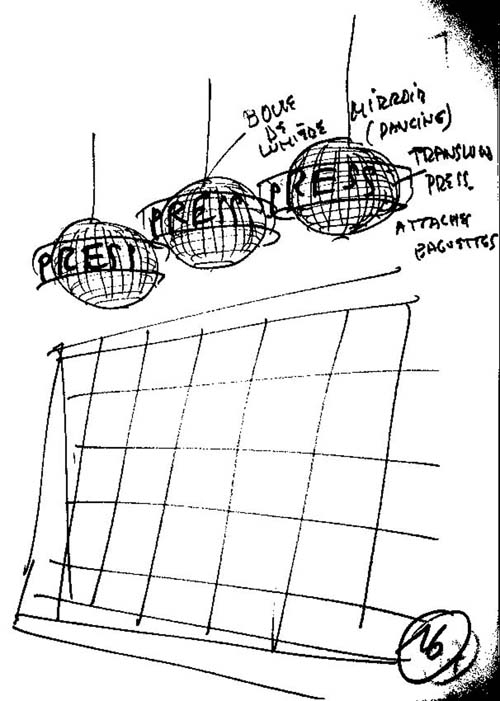 BOULE
DE
LUMIÈRE
MIRROIR
(DANCING)
TRANSLUCID
PRESS.
ATTACHES
BAGUETTES
PRESS
PRESS
PRESS
16